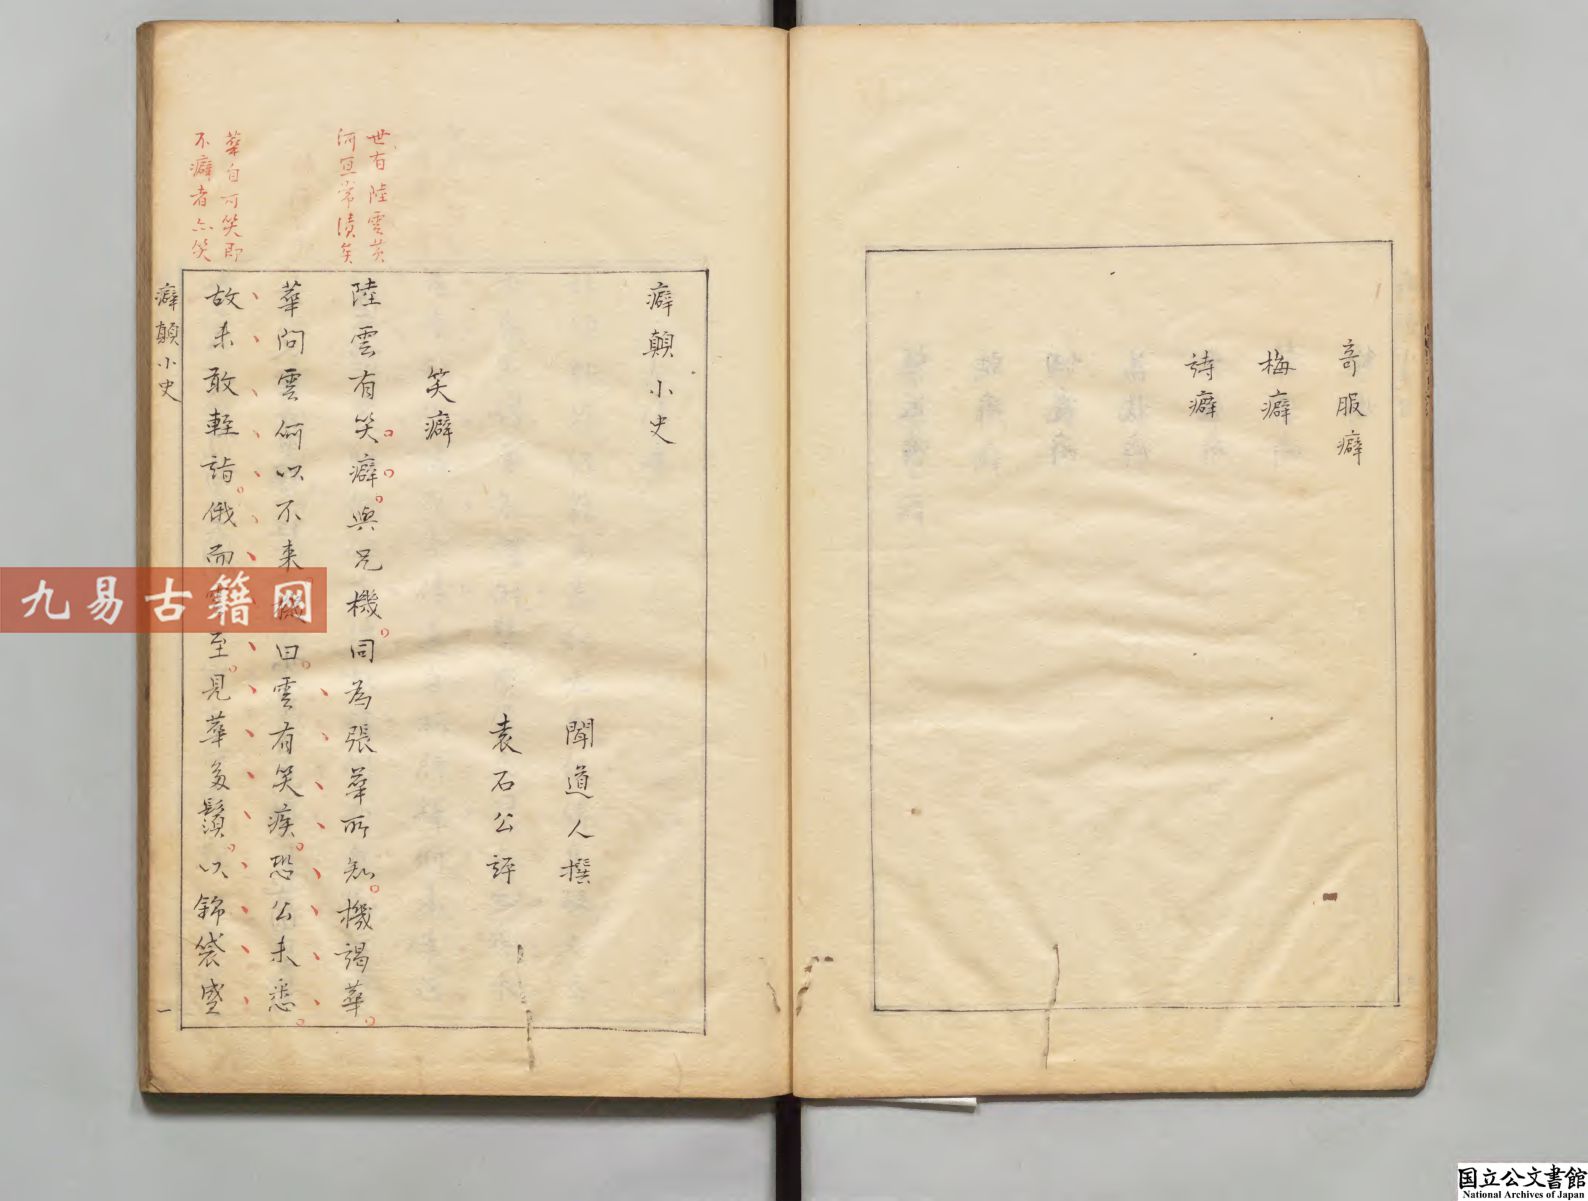 奇服癖
梅癖
詩癖
癖顛小史
聞道人撰
袁石公評
笑癖
陸雲有笑癖與兄機同為張華所知機謁華
華問雲何以不来機曰雲有笑疾恐公未悉
故未敢輕詣俄而雲至見華多鬚以錦袋盛
世有陸雲黃
河亘常清矣
華自可笑即
不癖者亦笑
癖顛小史
一
九易古籍网
国立公文書館
National Archives of Japan